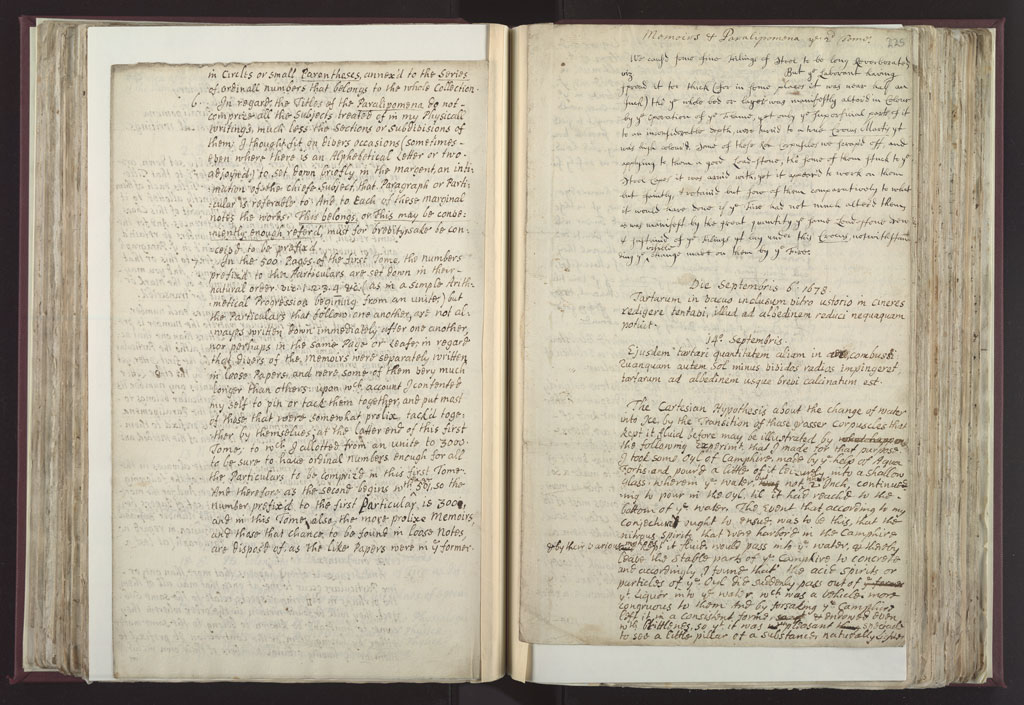 in Circles or small Parentheses, annex'd to the Series
of ordinall numbers that belongs to the whole Collection.
6. In regard the Titles of the Paralipomena do not
comprize all the Subjects treated of in my Physicall
writings, much less the Sections or Subdivisions of
them; I thought fit on divers occasions (sometimes
even where there is an Alphabetical Letter or two
adjoynd) to set down briefly in the margent, an inti-
mation of the chiefe Subject, that Paragraph or Parti-
cular is referable to: And to Each of these marginal
notes the works: This belongs, or This may be conve-
niently enough referd, must for brevitysake be con-
ceiv'd to be prefix'd.
In the 500 Pages of the first Tome, the numbers
prefix'd to the Particulars are set down in their
natural order viz. 1. 2. 3. 4 &c. (as in a simple Arith-
metical Progression begining from an unite) but
the Particulars that follow one another, are not al-
ways written down immediately after one another,
nor perhaps in the same Page or Leafe; in regard
that divers of the Memoirs were separately written
in loose Papers, and were some of them very much
longer than others: upon wch account I contented
my self to pin or tack them together, and put most
of those that were somewhat prolix, tack'd toge-
ther by themselves, at the latter end of this first
Tome; to wch I allotted from an unite to 3000.
to be sure to have ordinal numbers enough for all
the Particulars to be compriz'd in this first Tome.
And therefore as the second begins with so the
number prefix'd to the first Particular, is 3000,
and in this Tome also, the more prolixe Memoirs
and those that chance to be found in loose Notes,
are dispos'd of, as the like Papers were in ye former.
Memoirs & Paralipomena ye 2d Tome. 225
We caus'd some fine filings of Steel to be long reverberated
viz But ye Laborant having
spread it too thick (for in some places it was near half an
Inch) the ye whole bed or layer was manifestly alterd in Colour
by ye operation of ye Flame, yet only ye superficial parts of it
to an inconsiderable depth, were turnd to a true Crocus Martis yt
was high colourd. Some of these Corpuscles we scrap'd off, and
applying to them a good Load-stone, tho some of them stuck to ye
Steel Caps it was arm'd with, yet it appeard to work on them
but faintly, & retaind but few of them comparatively to what
it would have done if ye Fire had not much alterd them,
as was manifest by the great quantity of some Load-stone drew
& sustaind of ye filings yt lay under this Crocus, notwithstand-
ing ye visible change made on them by ye Fire.
Die Septembris 6o 1678
Tartarum in vacuo inclusum vitro ustorio in cineres
redigere tentavi, illud ad albedinem reduci nequaquam
potuit.
14o Septembris.
Ejusdem tartari quantitatem aliam in combussi
quanquam autem Sol minus vividos radios impingeret
tartarum ad albedinem usque brevi calcinatum est.
The Cartesian Hypothesis about the change of water
into Ice by the Transition of those grosser Corpuscles that
kept it fluid before may be illustrated by
the following experiment that I made for that purpose.
I took some Oyl of Camphire, made by ye help of Aqua
fortis, and pour'd a little of it leizurely into a shallow
Glass, wherein ye water was not 2 Inch, continue-
ing to pour in the Oyl, til it had reach'd to the
bottom of ye water. The Event that according to my
conjecture ought to ensue was to be this, that the
nitrous Spirits that were harbord in the Camphire
& by their various motions kept it fluid, would pass into ye water, & thereby
leave the Stable parts of ye Camphire to concrete
and accordingly I found that the acid Spirits or
particles of ye Oyl did suddenly pass out of
yt liquor into ye water wch was a Vehicle more
congruous to them And by forsaking ye Camphire
left it in a consistent forme & endowed even
with brittlenes, so yt it was pleasant
to see a little pillar of a substance naturally